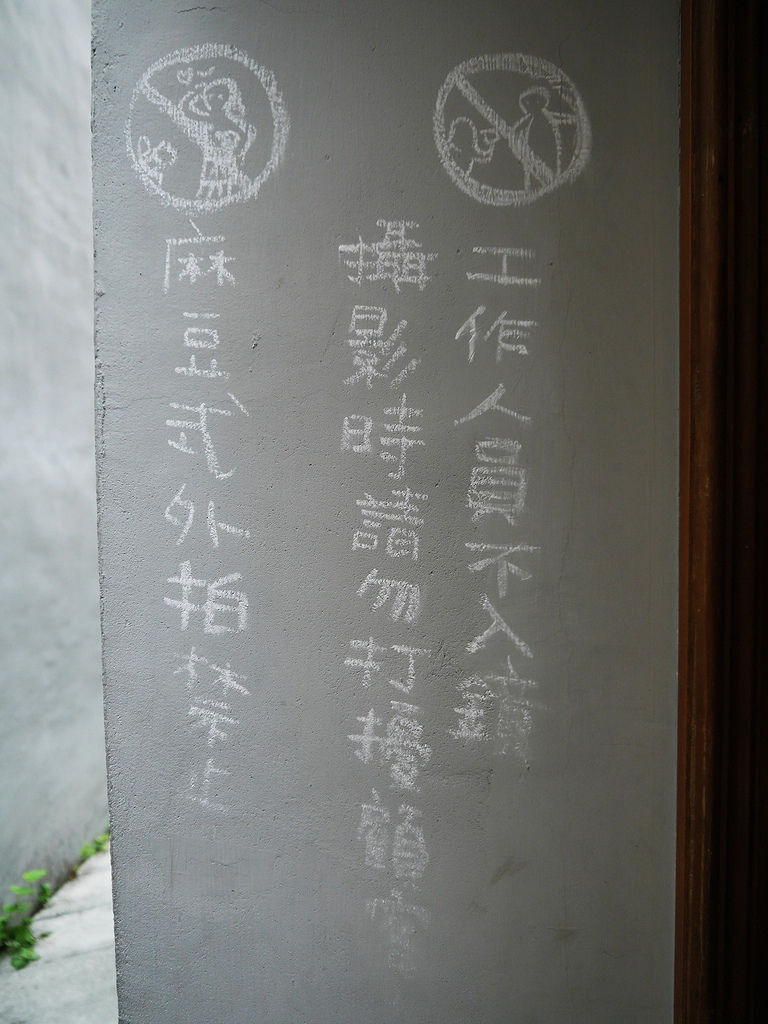 工作人員不入鏡
攝影時請勿打擾顧客
麻豆式外拍禁止